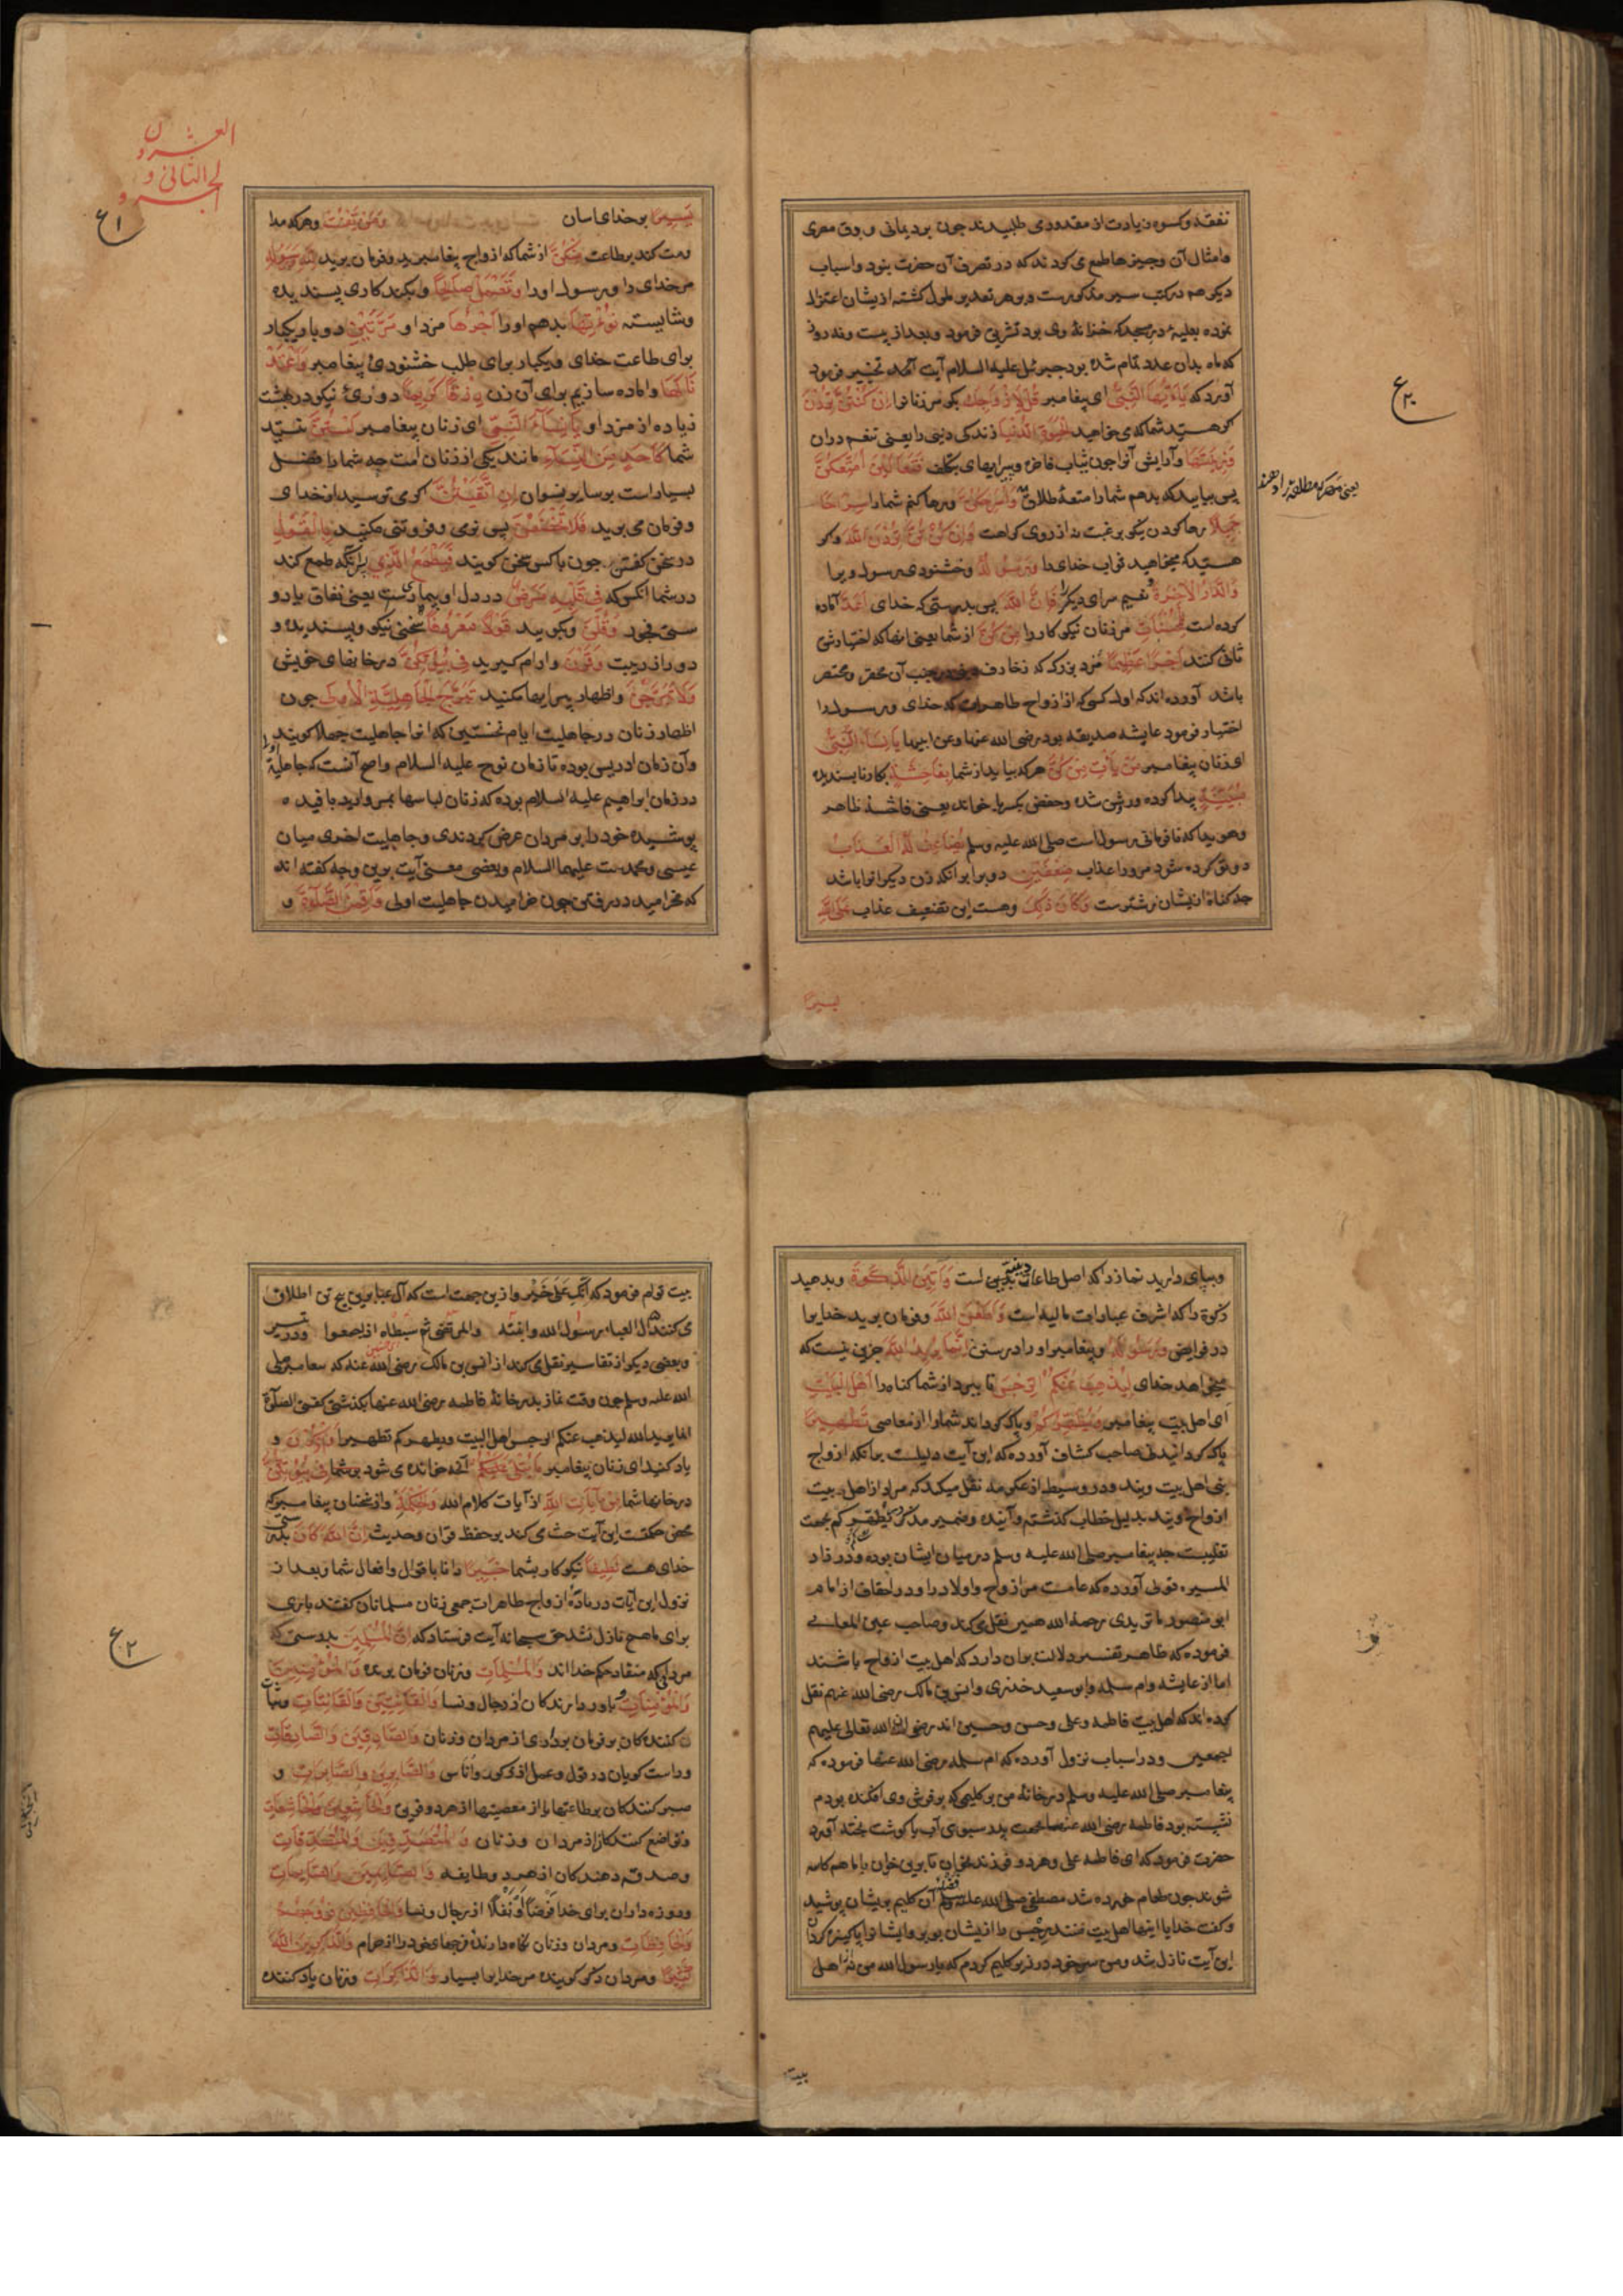 نفقه و کسوه زیادت از مقدوری طلبیدند چون برد یمانی و بوق مصری
وامثال آن وچیزها طمع می کردند که در تصرف آن حضرت نبود واسباب
دیگر هم در کتب سیر مذکورست وبر هر تقدیر ملول کشته ازیشان اعتزال
نموده بعلیه در مسجد که خزانهٔ وی بود تشریف فرمود وبعد از بیست ونه روز
که ماه بدان عدد تمام شده بود جبرئیل علیه السلام آیت تخییر فرود
آورد که یَاۤاَیُّهَا النَّبِیُّ ای پیغامبر قُل لِاَزْوَاجِكَ بکو مرزنانرا اِن کُنْتُنَّ تُرِدْنَ
کر هستید شما که می خواهید الْحَیٰوةَ الدُّنْیَا زندکی دنیی را یعنی تنعم دران
وَزِیْنَتَهَا وآرایش آنرا چون ثیاب فاخره وپیرایهای بتکلف فَتَعَالَیْنَ اُمَتِّعْکُنَّ
پس بیایید که بدهم شما را متعهٔ طلاق وَاُسَرِّحْکُنَّ ورها کنم شما را سَرَاحًا
جَمِیْلًا رها کردن نیکو برغبت نه از روی کراهت وَاِنْ کُنْتُنَّ تُرِدْنَ اللّٰهَ واکر
هستید که میخواهید ثواب خدای را وَرَسُوْلَهُ وخشنودی رسول ویرا
وَالدَّارَ الْاٰخِرَةَ ونعیم سرای دیکر را فَاِنَّ اللّٰهَ پس بدرستی که خدای اَعَدَّ آماده
کرده است لِلْمُحْسِنَاتِ مرزنان نیکو کار را مِنْکُنَّ از شما یعنی آنها که اختیار شق
ثانی کنند اَجْرًا عَظِیْمًا مزد بزرک که زخارف در جنب آن محقر و مختصر
باشد آورده اند که اول کسی که از ازواج طاهرات که خدای ورسول را
اختیار فرمود عایشه صدیقه بود رضی الله عنها وعن ابیها یَا نِسَاۤءَ النَّبِیِّ
ای زنان پیغامبر مَنْ یَأْتِ مِنْکُنَّ هر که بیاید از شما بِفَاحِشَةٍ بکار ناپسندیده
مُبَیِّنَةٍ پیدا کرده و روشن شده وحفص بکسر یا خواند یعنی فاحشهٔ ظاهر
وهویدا که نافرمانی رسولست صلی الله علیه وسلم یُضَاعَفْ لَهَا الْعَذَابُ
دو تو کرده شود مر ورا عذاب ضِعْفَیْنِ دو برابر آنکه زن دیکر را باشد
چه کناه ازیشان زشتترست وَکَانَ ذٰلِكَ وهست این تضعیف عذاب عَلَی اللّٰهِ
یسیرا
ع
یعنی مهر که مطلقه را دهند
العشرون
الجزو الثانی و
ع
یَسِیْرًا بر خدای اسان وَمَنْ یَقْنُتْ وهر که مدا
ومت کند بر طاعت مِنْکُنَّ از شما که ازواج پیغامبرید وفرمان برید لِلّٰهِ وَرَسُوْلِهِ
مر خدای را ورسول اورا وَتَعْمَلْ صَالِحًا وبکند کاری پسندیده
وشایسته نُؤْتِهَا بدهم اورا اَجْرَهَا مزد او مَرَّتَیْنِ دو بار یکبار
برای طاعت خدای ویکبار برای طلب خشنودی پیغامبر وَاَعْتَدْ
نَا لَهَا واماده سازیم برای آن زن رِزْقًا کَرِیْمًا روزیٔ نیکو در بهشت
زیاده از مزد او یَا نِسَاۤءَ النَّبِیِّ ای زنان پیغامبر لَسْتُنَّ نیستید
شما کَاَحَدٍ مِنَ النِّسَاۤءِ مانند یکی از زنان امت چه شما را فضل
بسیارست بر سایر نسوان اِنِ اتَّقَیْتُنَّ اکر می ترسید از خدای
وفرمان می برید فَلَا تَخْضَعْنَ پس نرمی وفروتنی مکنید بِالْقَوْلِ
در سخن کفتن چون با کسی سخن کویید فَیَطْمَعَ الَّذِی پس آنکه طمع کند
در شما آنکس که فِیْ قَلْبِهِ مَرَضٌ در دل او بیماریست یعنی نفاق یا زو
ستی فجور وَقُلْنَ وبکویید قَوْلًا مَعْرُوْفًا سخنی نیکو وپسندیده و
دور از ریبت وَقَرْنَ وارام کیرید فِیْ بُیُوْتِکُنَّ در خانهای خویش
وَلَا تَبَرَّجْنَ واظهار پیرایها مکنید تَبَرُّجَ الْجَاهِلِیَّةِ الْاُوْلٰی چون
اظهار زنان در جاهلیت ایام نخستین که انرا جاهلیت جهلا کویند
وآن زمان ادریس بوده تا زمان نوح علیه السلام واصح آنست که جاهلیة
در زمان ابراهیم علیه السلام بوده که زنان لباسها بمروارید بافیده
پوشیده خود را بر مردان عرض کردندی وجاهلیت اخری میان
عیسی ومحمدست علیهما السلام وبعضی معنی آیت برین وجه کفته اند
که مخرامید در رفتن چون خرامیدن جاهلیت اولی وَاَقِمْنَ الصَّلٰوةَ و
وبپای دارید نماز را که اصل طاعات بدنیی است وَاٰتِیْنَ الزَّکٰوةَ وبدهید
زکوة را که اشرف عبادات مالیه است وَاَطِعْنَ اللّٰهَ وفرمان برید خدایرا
در فرایض وَرَسُوْلَهُ وپیغامبر اورا در سنن اِنَّمَا یُرِیْدُ اللّٰهُ جزین نیست که
میخواهد خدای لِیُذْهِبَ عَنْکُمُ الرِّجْسَ تا ببرد از شما کناه را اَهْلَ الْبَیْتِ
ای اهل بیت پیغامبر وَیُطَهِّرَکُمْ وپاک کرداند شما را از معاصی تَطْهِیْرًا
پاک کردانیدنی صاحب کشاف آورده که این آیت دلیلست برانکه ازواج
نبی اهل بیت ویند ودر وسیط از عکرمه نقل میکند که مراد از اهل بیت
ازواج ویند بدلیل خطاب کذشته وآینده وضمیر مذکر در یطهرکم بجهت
تغلیبست چه پیغامبر صلی الله علیه وسلم در میان ایشان بوده ودر زاد
المسیر قولی آورده که عامست مر ازواج واولاد را ودر احقاف از امام
ابو منصور ماتریدی رحمة الله همین نقل می کند وصاحب عین المعانی
فرموده که ظاهر تفسیر دلالت بران دارد که اهل بیت ازواج باشند
اما از عایشه وام سلمه وابو سعید خدری وانس بن مالک رضی الله عنهم نقل
کرده اند که اهل بیت فاطمه وعلی وحسن وحسین اند رضوان الله تعالی علیهم
اجمعین ودر اسباب نزول آورده که ام سلمه رضی الله عنها فرموده که
پیغامبر صلی الله علیه وسلم در خانهٔ من بر کلیمی که بر فرش وی افکنده بودم
نشسته بود فاطمه رضی الله عنها جهت پدر سبوی آب با کوشت پخته آورد
حضرت فرمود که ای فاطمه علی وهر دو فرزند بخوان تا برین خوان با ما هم کاسه
شوند چون طعام خورده شد مصطفی صلی الله علیه وسلم آن کلیم بریشان پوشید
وکفت خدایا اینها اهل بیت منند رجس را ازیشان ببر وایشانرا پاکیزه کردان
این آیت نازل شد ومن سر خود در زیر کلیم کردم که یا رسول الله من نه از اهل
بیت
بیت توام فرمود که اَنْتِ عَلٰی خَیْرٍ وازین جهت است که آل عبا برین پنج تن اطلاق
می کنند آل العباء رسول الله وابنته والمرتضی ثم سبطاه اذا جمعوا ودر سیر
وبعضی دیکر از تفاسیر نقل می کند از انس بن مالک رضی الله عنه که پیغامبر صلی
الله علیه وسلم چون وقت نماز بدر خانهٔ فاطمه رضی الله عنها بکذشتی کفتی الصلوة
انما یرید الله لیذهب عنکم الرجس اهل البیت ویطهرکم تطهیرا وَاذْکُرْنَ و
یاد کنید ای زنان پیغامبر مَا یُتْلٰی عَلَیْکُمْ آنچه خوانده می شود بر شما فِیْ بُیُوْتِکُنَّ
در خانهای شما مِنْ اٰیَاتِ اللّٰهِ از آیات کلام الله وَالْحِکْمَةِ واز سخنان پیغامبر که
محض حکمتست این آیت حث می کند بر حفظ قران وحدیث اِنَّ اللّٰهَ کَانَ بدرستی
خدای هست لَطِیْفًا نیکو کار بشما خَبِیْرًا دانا باقوال وافعال شما وبعد از
نزول این آیات در مادهٔ ازواج طاهرات جمعی زنان مسلمانان کفتند باری
برای ما هیچ نازل نشد حق سبحانه آیت فرستاد که اِنَّ الْمُسْلِمِیْنَ بدرستی که
مردانی که منقاد حکم خدا اند وَالْمُسْلِمَاتِ وزنان فرمان برنده وَالْمُؤْمِنِیْنَ
وَالْمُؤْمِنَاتِ وباور دارندکان از رجال ونسا وَالْقَانِتِیْنَ وَالْقَانِتَاتِ وثبات
کنندکان بر فرمان برداری از مردان وزنان وَالصَّادِقِیْنَ وَالصَّادِقَاتِ
وراست کویان در قول وعمل از ذکور واناس وَالصَّابِرِیْنَ وَالصَّابِرَاتِ و
صبر کنندکان بر طاعتها یا از معصیتها از هر دو فریق وَالْخَاشِعِیْنَ وَالْخَاشِعَاتِ
وتواضع کنندکان از مردان وزنان وَالْمُتَصَدِّقِیْنَ وَالْمُتَصَدِّقَاتِ
وصدقه دهندکان از هر دو طایفه وَالصَّائِمِیْنَ وَالصَّائِمَاتِ
وروزه داران برای خدا فرضا ونفلا از رجال ونسا وَالْحَافِظِیْنَ فُرُوْجَهُمْ
وَالْحَافِظَاتِ ومردان وزنان نکاه دارنده فرجهای خود را از حرام وَالذَّاکِرِیْنَ اللّٰهَ
کَثِیْرًا ومردان ذکر کوینده مر خدایرا بسیار وَالذَّاکِرَاتِ وزنان یاد کننده
ع